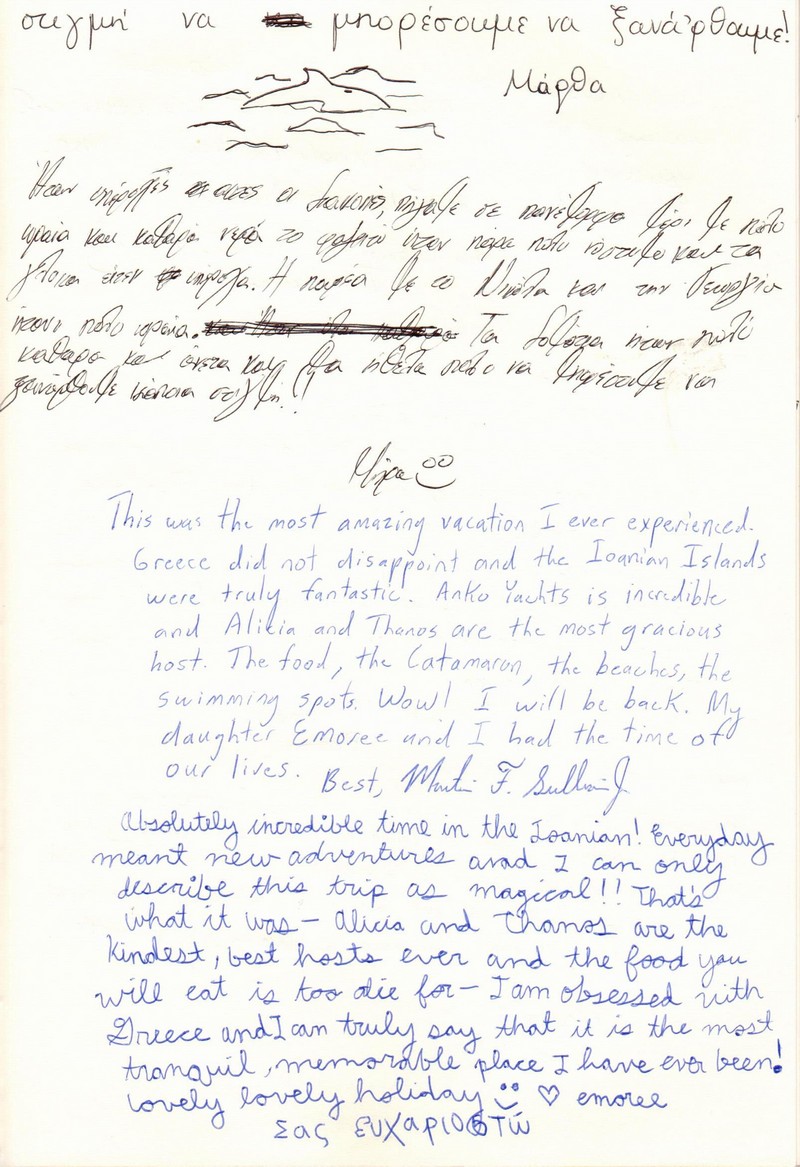 στιγμή να μπορέσουμε να ξανάρθουμε!
Μάρθα
Ήταν υπέροχες οι διακοπές, πήγαμε σε πανέμορφα μέρη με πολύ
ωραία και καθαρά νερά το φαγητό ήταν πάρα πολύ νόστιμο και τα
άτομα ήταν υπέροχα. Η παρέα με το και την Γεωργία
ήταν πολύ ωραία. Τα δωμάτια ήταν πολύ
καθαρά και άνετα και θα ήθελα πολύ να μπορέσουμε να
ξανάρθουμε κάποια στιγμή!!
This was the most amazing vacation I ever experienced.
Greece did not disappoint and the Ioanian Islands
were truly fantastic. Anko Yachts is incredible
and Alicia and Thanos are the most gracious
host. The food, the Catamaran, the beaches, the
swimming spots. Wow! I will be back. My
daughter Emoree and I had the time of
our lives. Best, Martin F. Sullivan Jr.
Absolutely incredible time in the Ioanian! Everyday
meant new adventures and I can only
describe this trip as magical!! That's
what it was – Alicia and Thanos are the
kindest, best hosts ever and the food you
will eat is too die for – I am obsessed with
Greece and I can truly say that it is the most
tranquil, memorable place I have ever been!
Lovely lovely holiday ♡ emoree
Σας ευχαριστώ